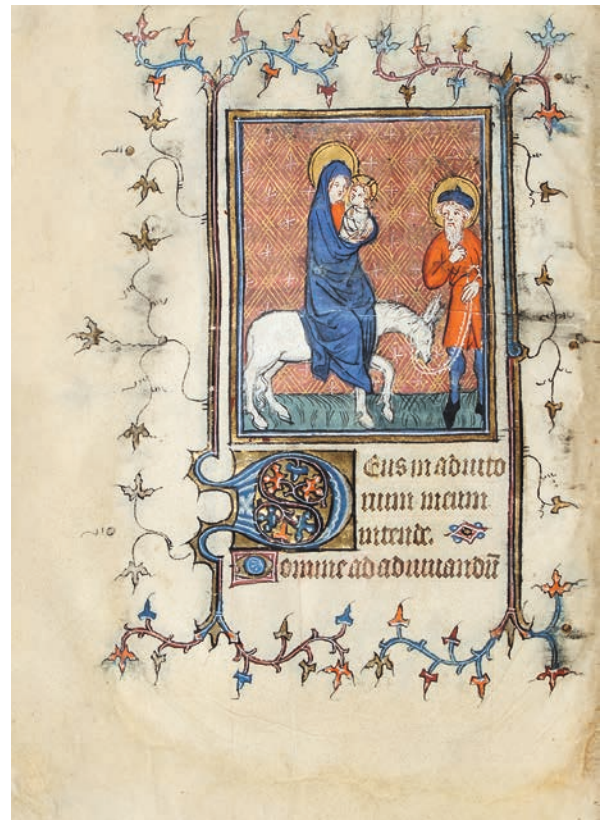 Deus in adiuto
rium meum
intende.
Domine ad adiuuandū